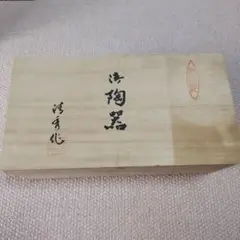 御陶器
清秀作